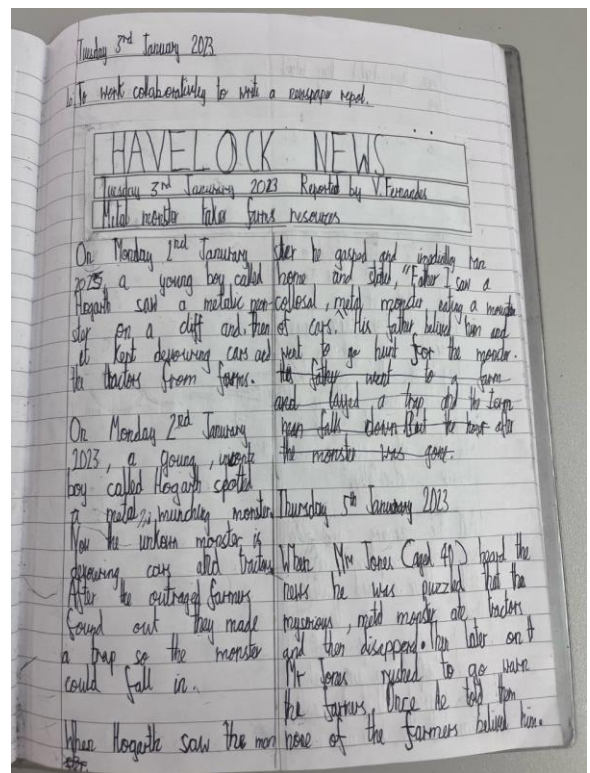 Tuesday 3rd January 2023
L: To work collaboratively to write a newspaper repot.
HAVELOCK NEWS
Tuesday 3rd Janurary 2023 Reported by V.Fernandes
Metal monster takes farms resources
On Monday 2nd Janurary
2023, a young boy called
Hogarth saw a metalic mon-
ster on a cliff and then
it kept devouring cars and
the tractors from farms.
On Monday 2nd Janurary
2023, a young,
boy called Hogarth spotted
a metal, munching monster.
Now the unkown monster is
devouring cars and tractors
After the outraged farmers
found out they made
a trap so the monster
could fall in.
When Hogarth saw the mon
ster he gasped and imediatly ran
home and stated, "Father I saw a
colosal, metal monster eating a
of cars." His father belived him and
went to go hunt for the monster.
his father went to a farm
and layed a trap and the
down But the after
the monster was gone.
Thursday 5th Janurary 2023
When Mr Jones (aged 40) heard the
news he was puzzled that the
mysterious, metal monster ate tractors
and then disapperd. Then later on
Mr Jones rushed to go warn
the farmers. Once he told them
none of the farmers belived him.